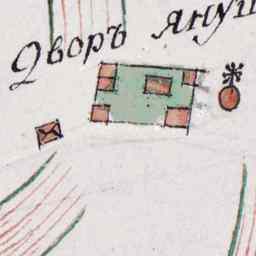 Дворъ яну